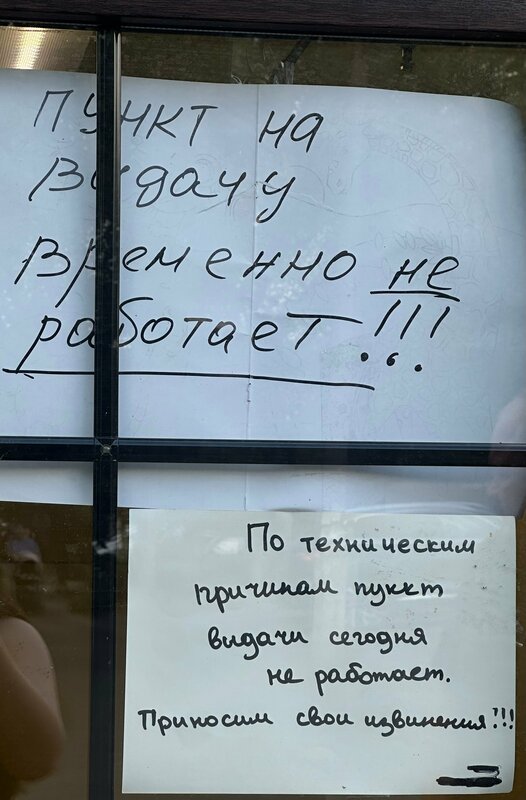 Пункт на
выдачу
временно не
работает!!!
По техническим
причинам пункт
выдачи сегодня
не работает.
Приносим свои извинения!!!